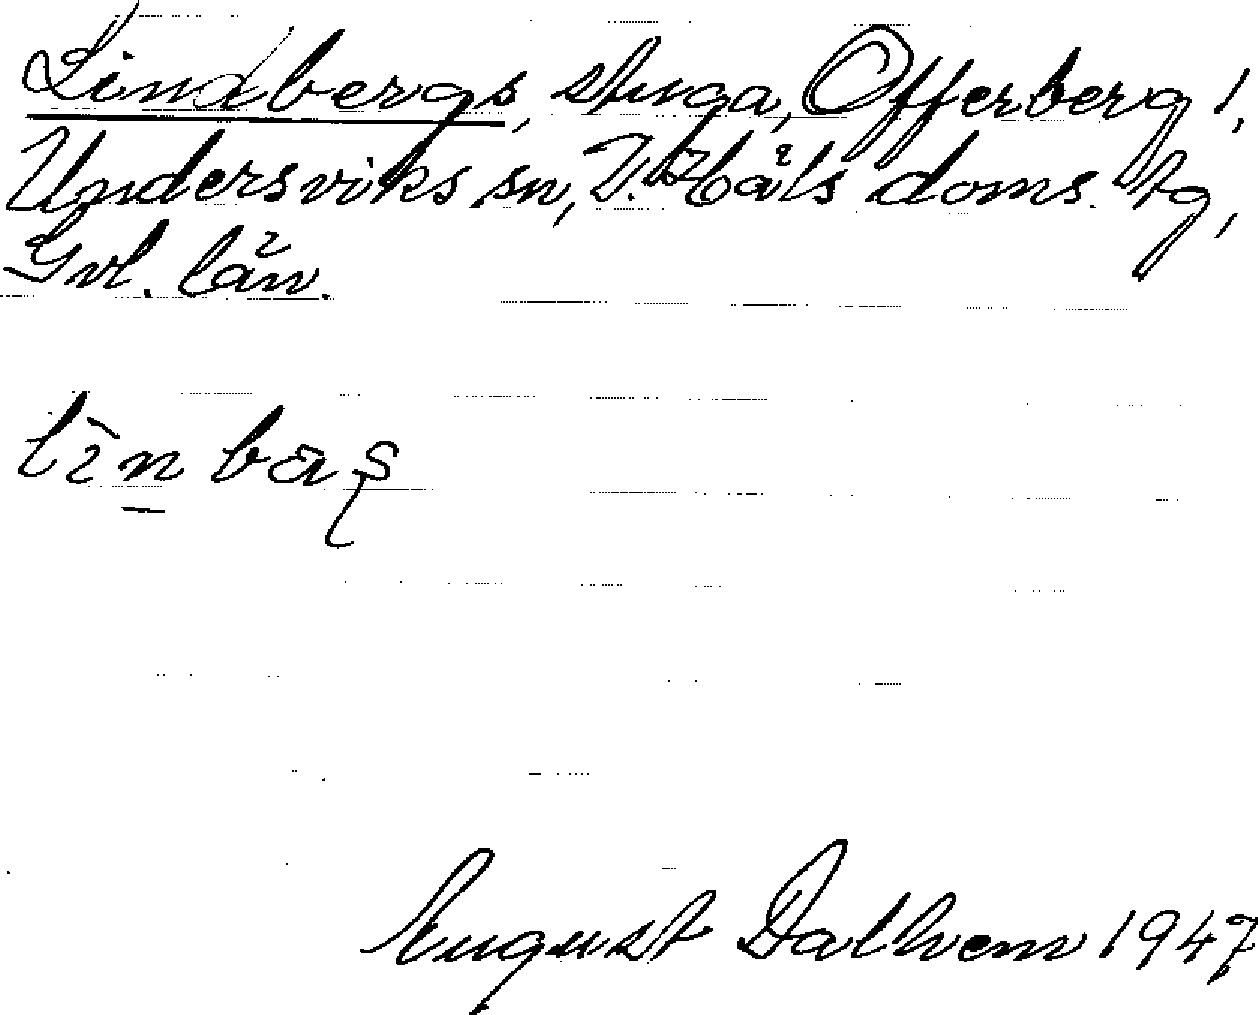 Lindbergs, stuga, Offerberg 1,
Undersviks sn, V. Häls doms. tg,
Gvl. län.
August Dalhem 1947